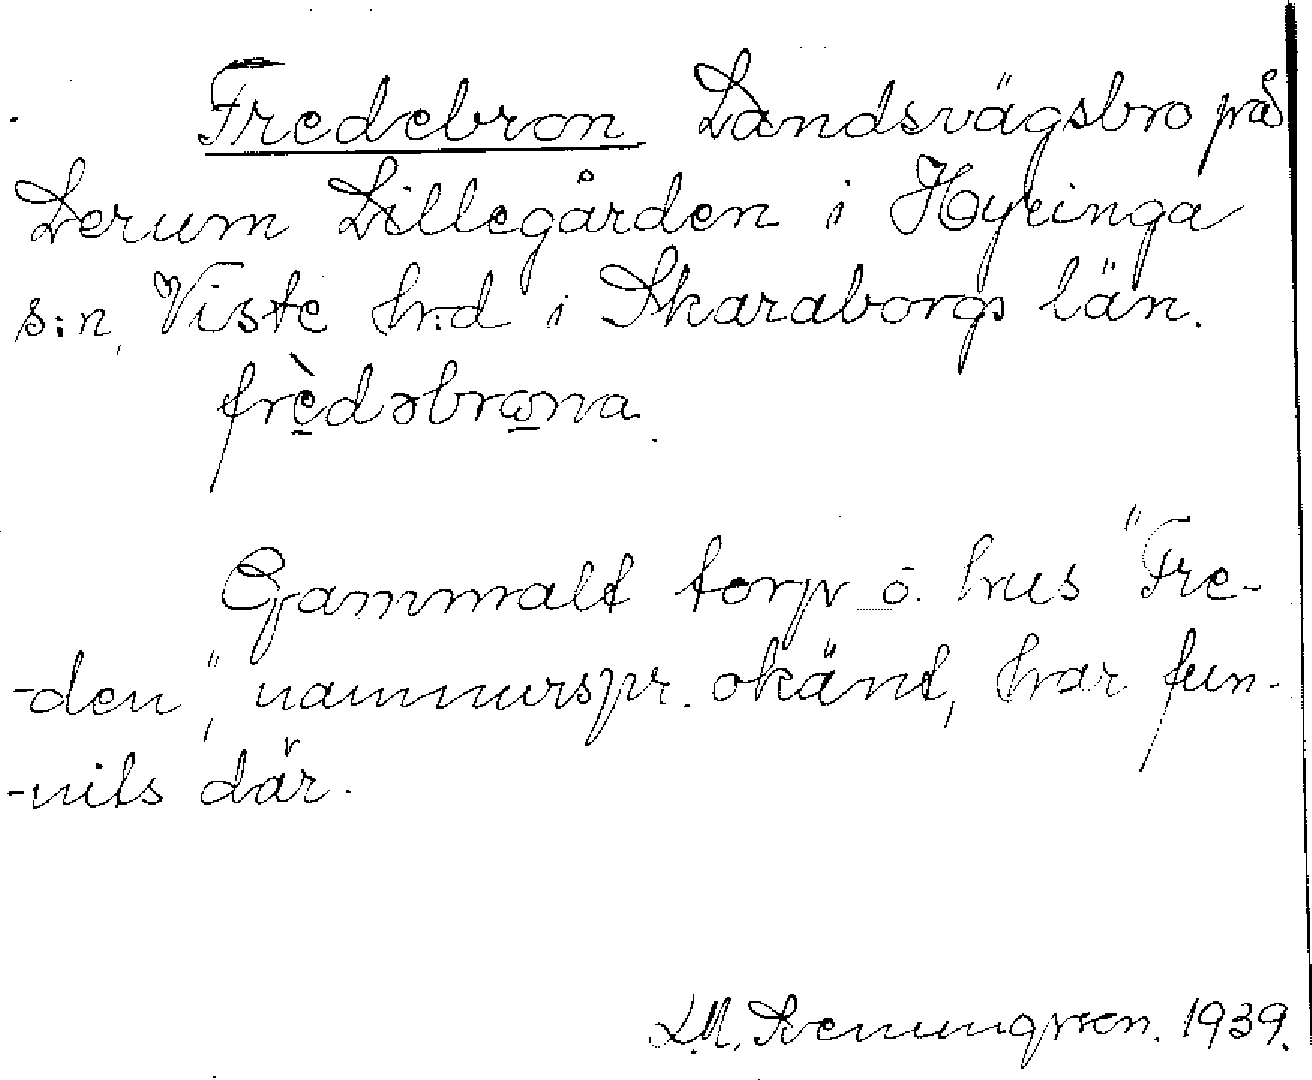 Fredebron Landsvägsbro på
Lerum Lillegården i Hyringa
s:n, Viste hrd i Skaraborgs län.
frè̠dəbro̠na.
Gammalt torp o. hus "Fre-
-den", namnurspr. okänt, har fun-
-nits där.
L.M. Svenungsson. 1939.